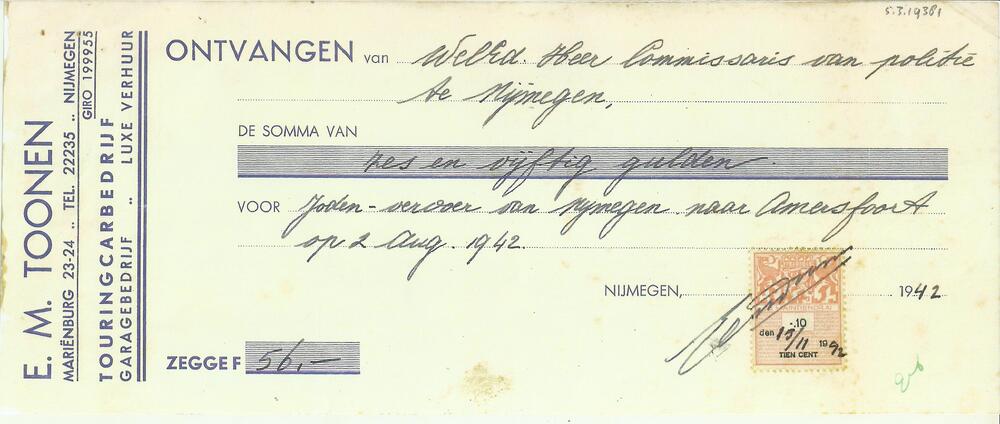 5.3.19381
E. M. TOONEN
MARIËNBURG 23-24 .. TEL. 22235 .. NIJMEGEN
GIRO 199955
TOURINGCARBEDRIJF
GARAGEBEDRIJF .. LUXE VERHUUR
ONTVANGEN van WelEd. Heer Commissaris van politie
te Nijmegen,
DE SOMMA VAN
zes en vijftig gulden.
VOOR Joden-vervoer van Nijmegen naar Amersfoort
op 2 Aug. 1942.
NIJMEGEN, 1942
-.10
den 13/11 1942
TIEN CENT
ZEGGE F 56,-